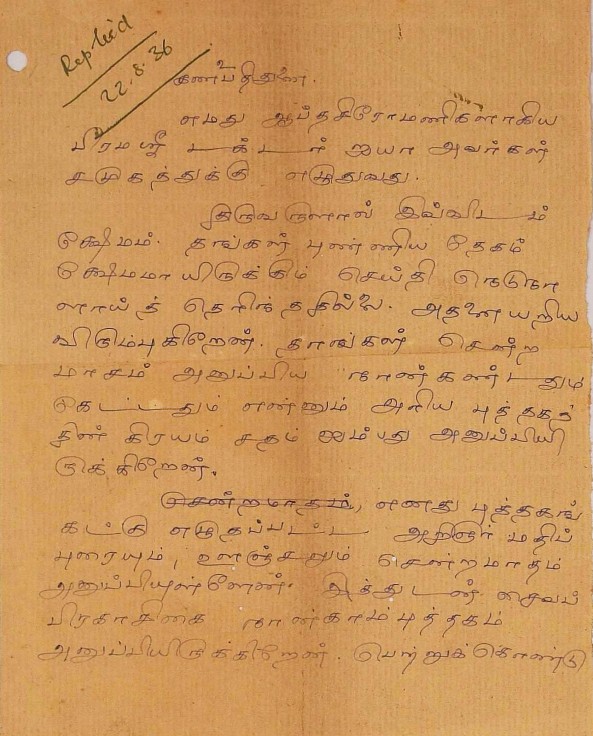 Replied
22.8.36
கணபதிதுணை.
எமது ஆப்தசிரோமணிகளாகிய
பிரமஸ்ரீ டாக்டர் ஐயா அவர்கள்
சமுகத்துக்கு எழுதுவது.
திருவருளால் இவ்விடம்
க்ஷேமம். தாங்கள் புண்ணிய தேகம்
க்ஷேமமாயிருக்கும் செய்தி நெடுநா
ளாய்த் தெரிந்ததில்லை. அதனையறிய
விரும்புகிறேன். தாங்கள் சென்ற
மாசம் அனுப்பிய நான்கண்டதும்
கேட்டதும் என்னும் அரிய புத்தகத்
தின் கிரயம் சதம் ஐம்பது அனுப்பியி
ருக்கிறேன்.
சென்றமாதம், எனது புத்தகங்
கட்கு எழுதப்பட்ட அறிஞர் மதிப்
புரையும், ஊஞ்சலும் சென்றமாதம்
அனுப்பியுள்ளேன். இத்துடன் சைவப்
பிரகாசிகை நான்காம்புத்தகம்
அனுப்பியிருக்கிறேன். பெற்றுக்கொண்டு